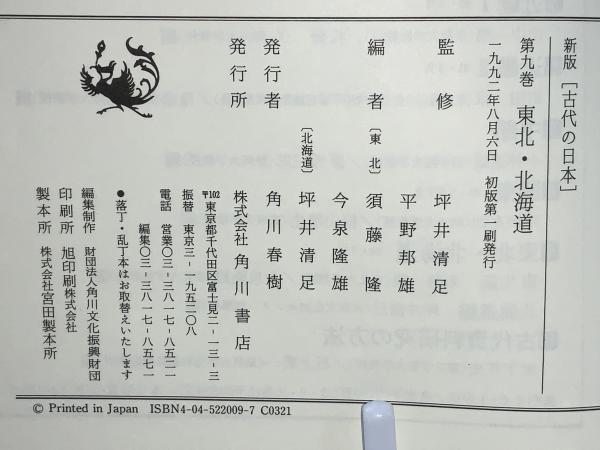 新版［古代の日本］
第九巻 東北・北海道
一九九二年八月六日 初版第一刷発行
監修 坪井清足
平野邦雄
編者〔東北〕須藤隆
今泉隆雄
〔北海道〕坪井清足
発行者 角川春樹
発行所 株式会社 角川書店
〒102 東京都千代田区富士見二-一三-三
振替 東京三-一九五二〇八
電話 営業〇三-三八一七-八五二一
編集〇三-三八一七-八五七一
●落丁・乱丁本はお取替えいたします
編集制作 財団法人角川文化振興財団
印刷所 旭印刷株式会社
製本所 株式会社宮田製本所
© Printed in Japan ISBN4-04-522009-7 C0321